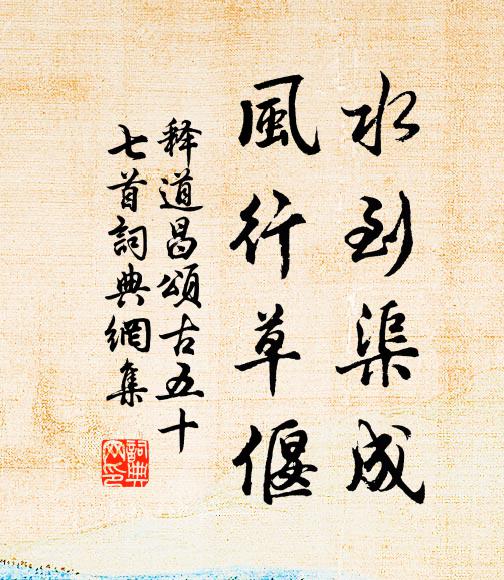 水到渠成
風行草偃
释道昌頌古五十
七首詞典網集
詞典
网印